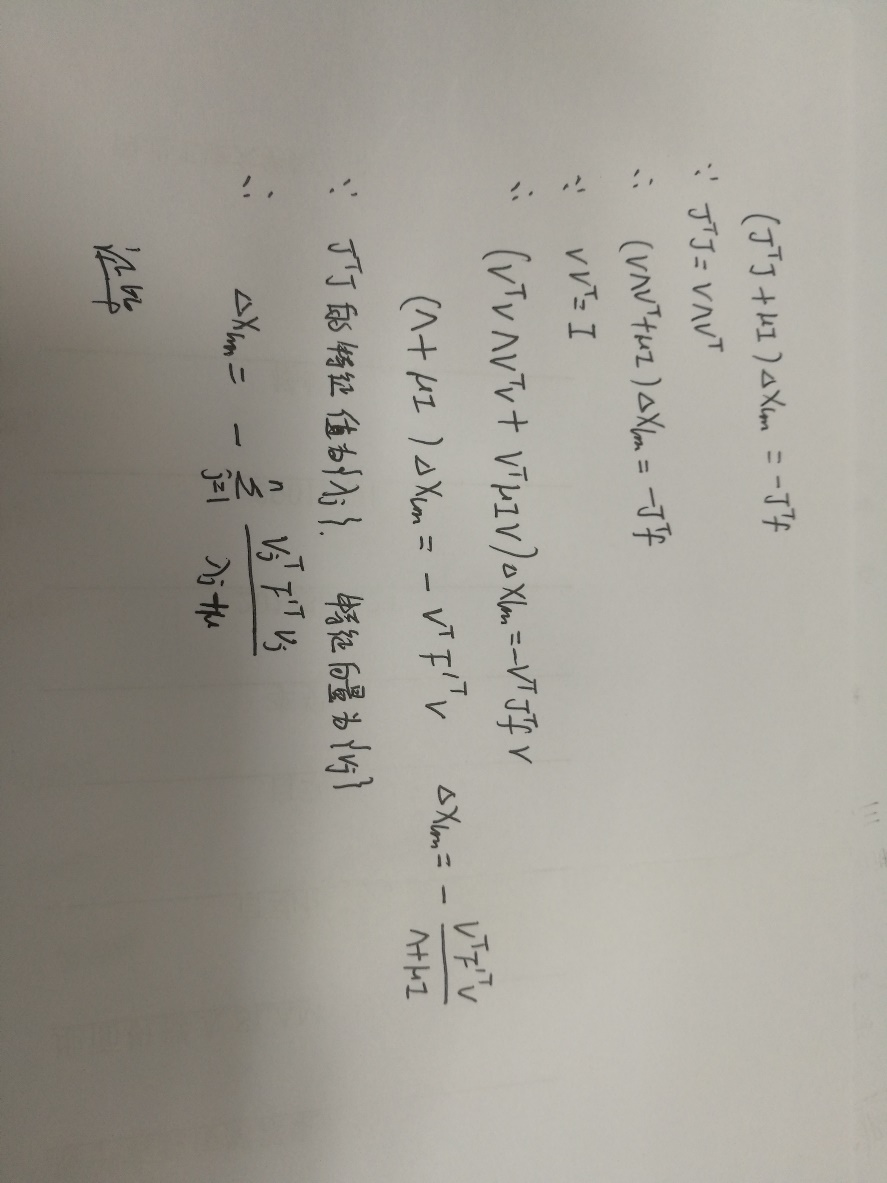 (JᵀJ + μI) ΔXlm = -Jᵀf
∵ JᵀJ = VΛVᵀ
∴ (VΛVᵀ + μI) ΔXlm = -Jᵀf
∵ VVᵀ = I
∴ (VᵀVΛVᵀV + VᵀμIV) ΔXlm = -VᵀJᵀf V
(Λ + μI) ΔXlm = - VᵀF'ᵀV ΔXlm = - VᵀF'ᵀV / Λ+μI
∵ JᵀJ 的特征值为{λj}. 特征向量为{Vj}
∴ ΔXlm = - Σ_{j=1}^{n} VjᵀF'ᵀVj / λj+μ
证毕